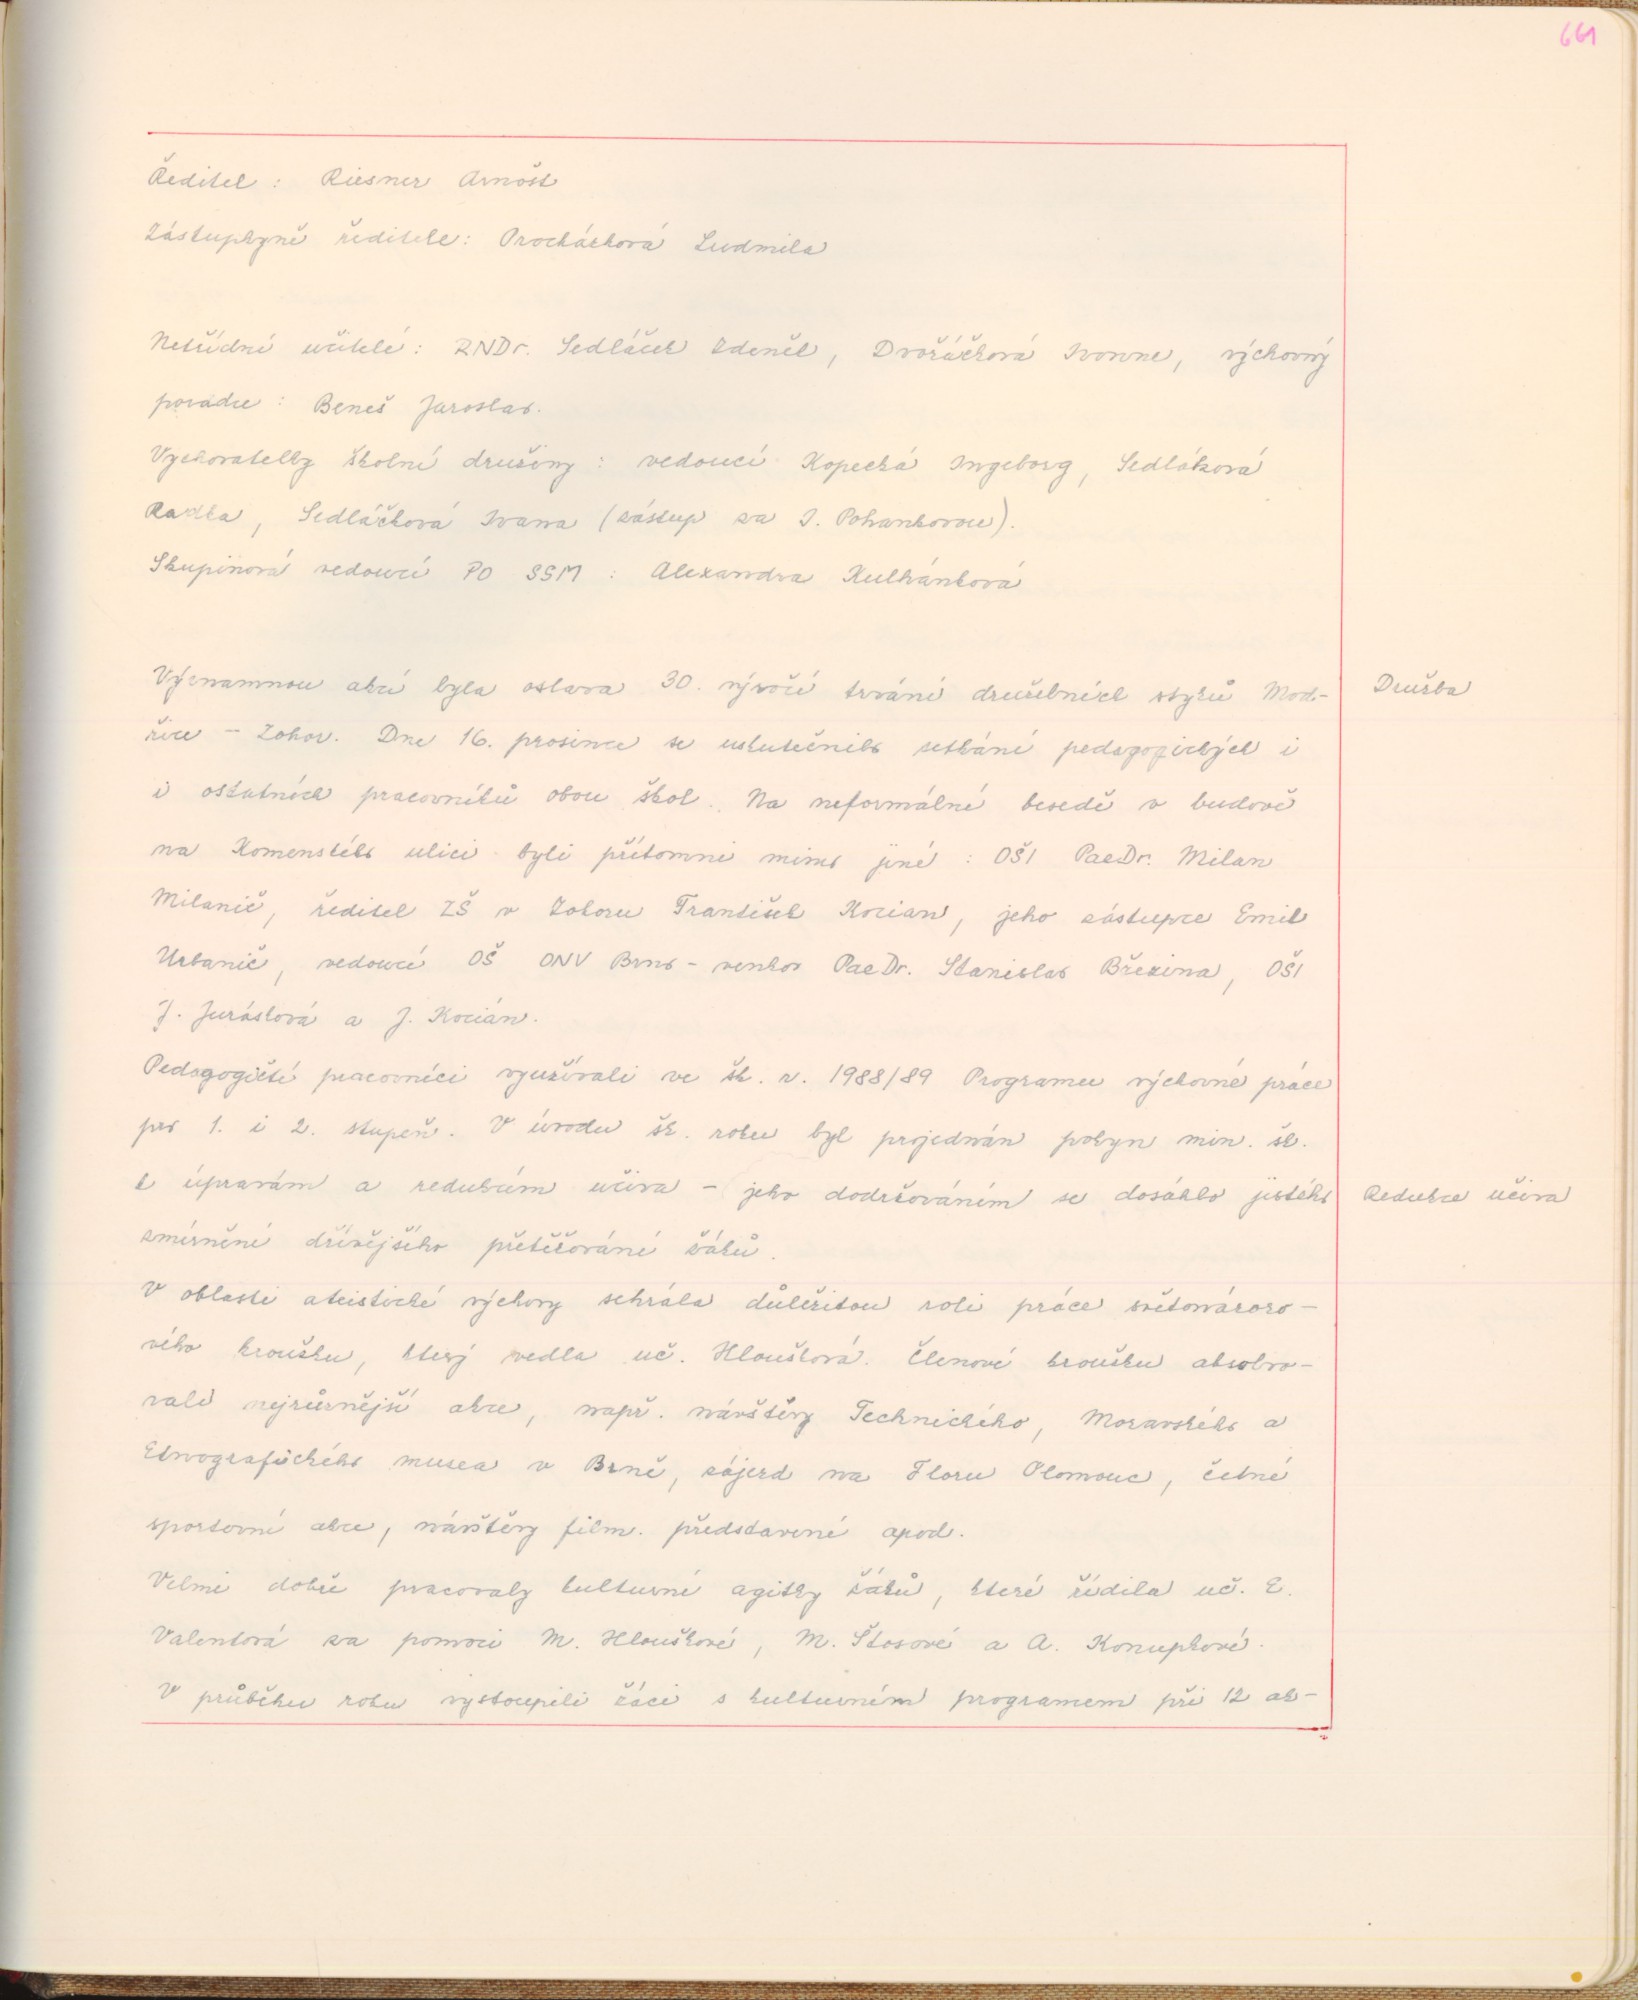 661
Ředitel : Riesner Arnošt
Zástupkyně ředitele: Procházková Ludmila
Netřídní učitelé : RNDr. Sedláček Zdeněk, Dvořáčková Ivonne, výchovný
poradce : Beneš Jaroslav.
Vychovatelky školní družiny : vedoucí Kopecká Ingeborg, Sedláková
Radka, Sedláčková Ivana (zástup za I. Pohankovou).
Skupinová vedoucí PO SSM : Alexandra Kulhánková
Významnou akcí byla oslava 30. výročí trvání družebních styků Mod- Družba
řice - Zohor. Dne 16. prosince se uskutečnilo setkání pedagogických i
i ostatních pracovníků obou škol. Na neformální besedě v budově
na Komenského ulici byli přítomni mimo jiné : OŠI PaeDr. Milan
Milanič, ředitel ZŠ v Zohoru František Kocian, jeho zástupce Emil
Urbanič, vedoucí OŠ ONV Brno - venkov PaeDr. Stanislav Březina, OŠI
J. Jurásková a J. Kocián.
Pedagogičtí pracovníci využívali ve šk. r. 1988/89 Programu výchovné práce
pro 1. i 2. stupeň. V úvodu šk. roku byl projednán pokyn min. šk.
k úpravám a redukcím učiva - jeho dodržováním se dosáhlo jistého Redukce učiva
zmírnění dřívějšího přetěžování žáků.
V oblasti ateistické výchovy sehrála důležitou roli práce světonázoro-
vého kroužku, který vedla uč. Hloušková. Členové kroužku absolvo-
vali nejrůznější akce, např. návštěvy Technického, Moravského a
Etnografického musea v Brně, zájezd na Floru Olomouc, četné
sportovní akce, návštěvy film. představení apod.
Velmi dobře pracovaly kulturní agitky žáků, které řídila uč. E.
Valentová za pomoci M. Hlouškové, M. Štosové a A. Konupkové.
V průběhu roku vystoupili žáci s kulturním programem při 12 ak-